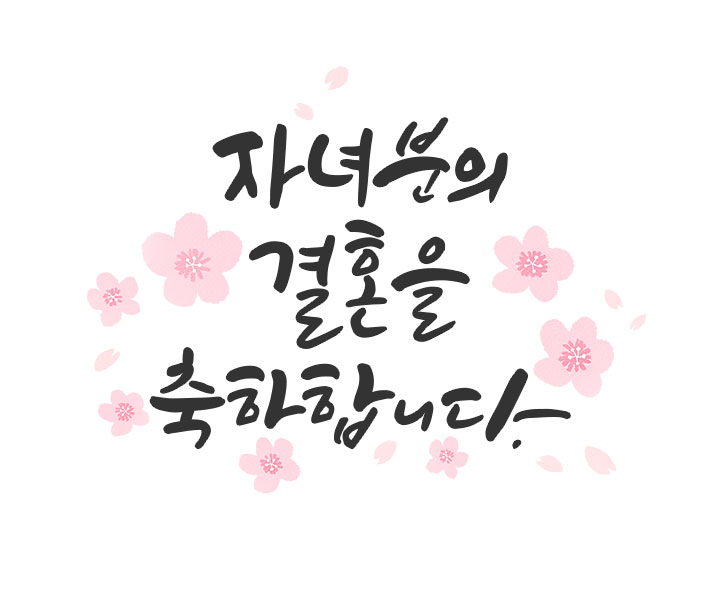 자녀분의
결혼을
축하합니다.